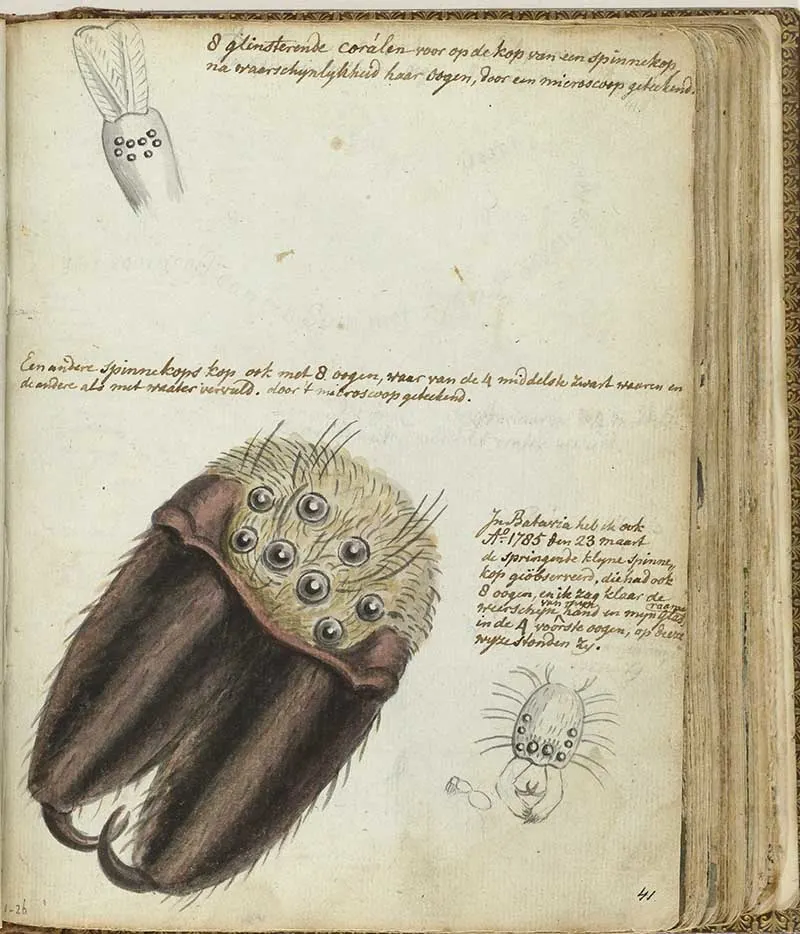 8 glinsterende corálen voor op de kop van een spinnekop,
na waarschynlykheid haar oogen, door een microscoop geteekend.
Een andere spinnekops kop ook met 8 oogen, waar van de 4 middelste zwart waaren en
de andere als met waater vervuld. door 't microscoop geteekend.
In Batavia heb ik ook
Aº. 1785 den 23 maart
de springende klyne spinne„
kop geöbserveerd, die had ook
8 oogen, en ik zag klaar de
weerschyn van myn hand en myn glas raame
in de 4 voorste oogen, op deeze
wyze stonden zy.
41
1-26